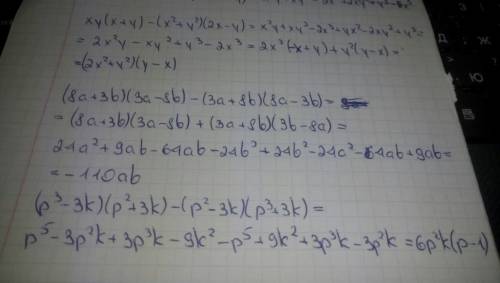 xy(x+y)-(x²+y²)(2x-y)=x²y+xy²-2x³+yx²-2xy²+y³=
=2x²y-xy²+y³-2x³=2x²(-x+y)+y²(y-x)=
=(2x²+y²)(y-x)
(8a+3b)(3a-8b)-(3a+8b)(8a-3b)=
=(8a+3b)(3a-8b)+(3a+8b)(3b-8a)=
24a²+9ab-64ab-24b²+24b²-24a²-64ab+9ab=
=-110ab
(p³-3k)(p²+3k)-(p²-3k)(p³+3k)=
p⁵-3p²k+3p³k-9k²-p⁵+9k²+3p³k-3p²k=6p²k(p-1)